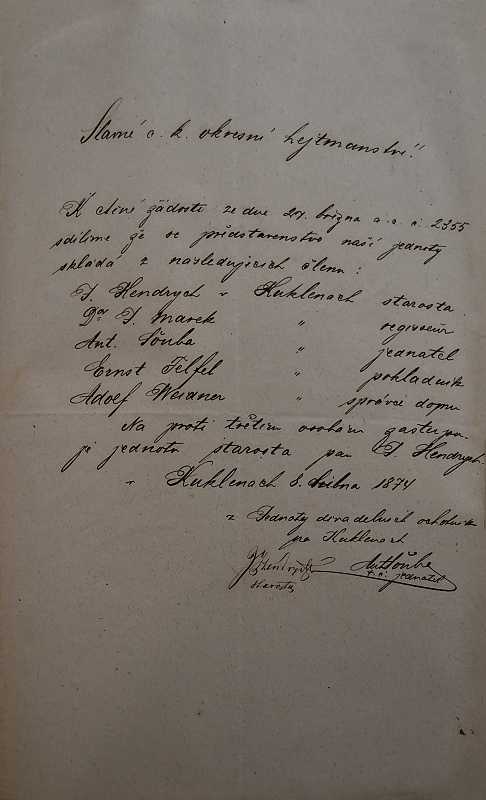 Slavné c. k. okresní hejtmanství!
K ctěné žádosti ze dne 27. března a. c. č. 2355
sdílíme že se představenstvo naší jednoty
skládá z následujících členů:
J. Hendrych v Kuklenách starosta
Dor J. Marek " regisseur
Ant. Souba " jednatel
Ernst Felfel " pokladník
Adolf Weidner " správce domu
Na proti třetím osobám zastupu-
je jednotu starosta pan J. Hendrych.
v Kuklenách 8. dubna 1874
z Jednoty divadelních ochotníků
pro Kukleny
J. Hendrych Ant. Souba
starosta t. č. jednatel